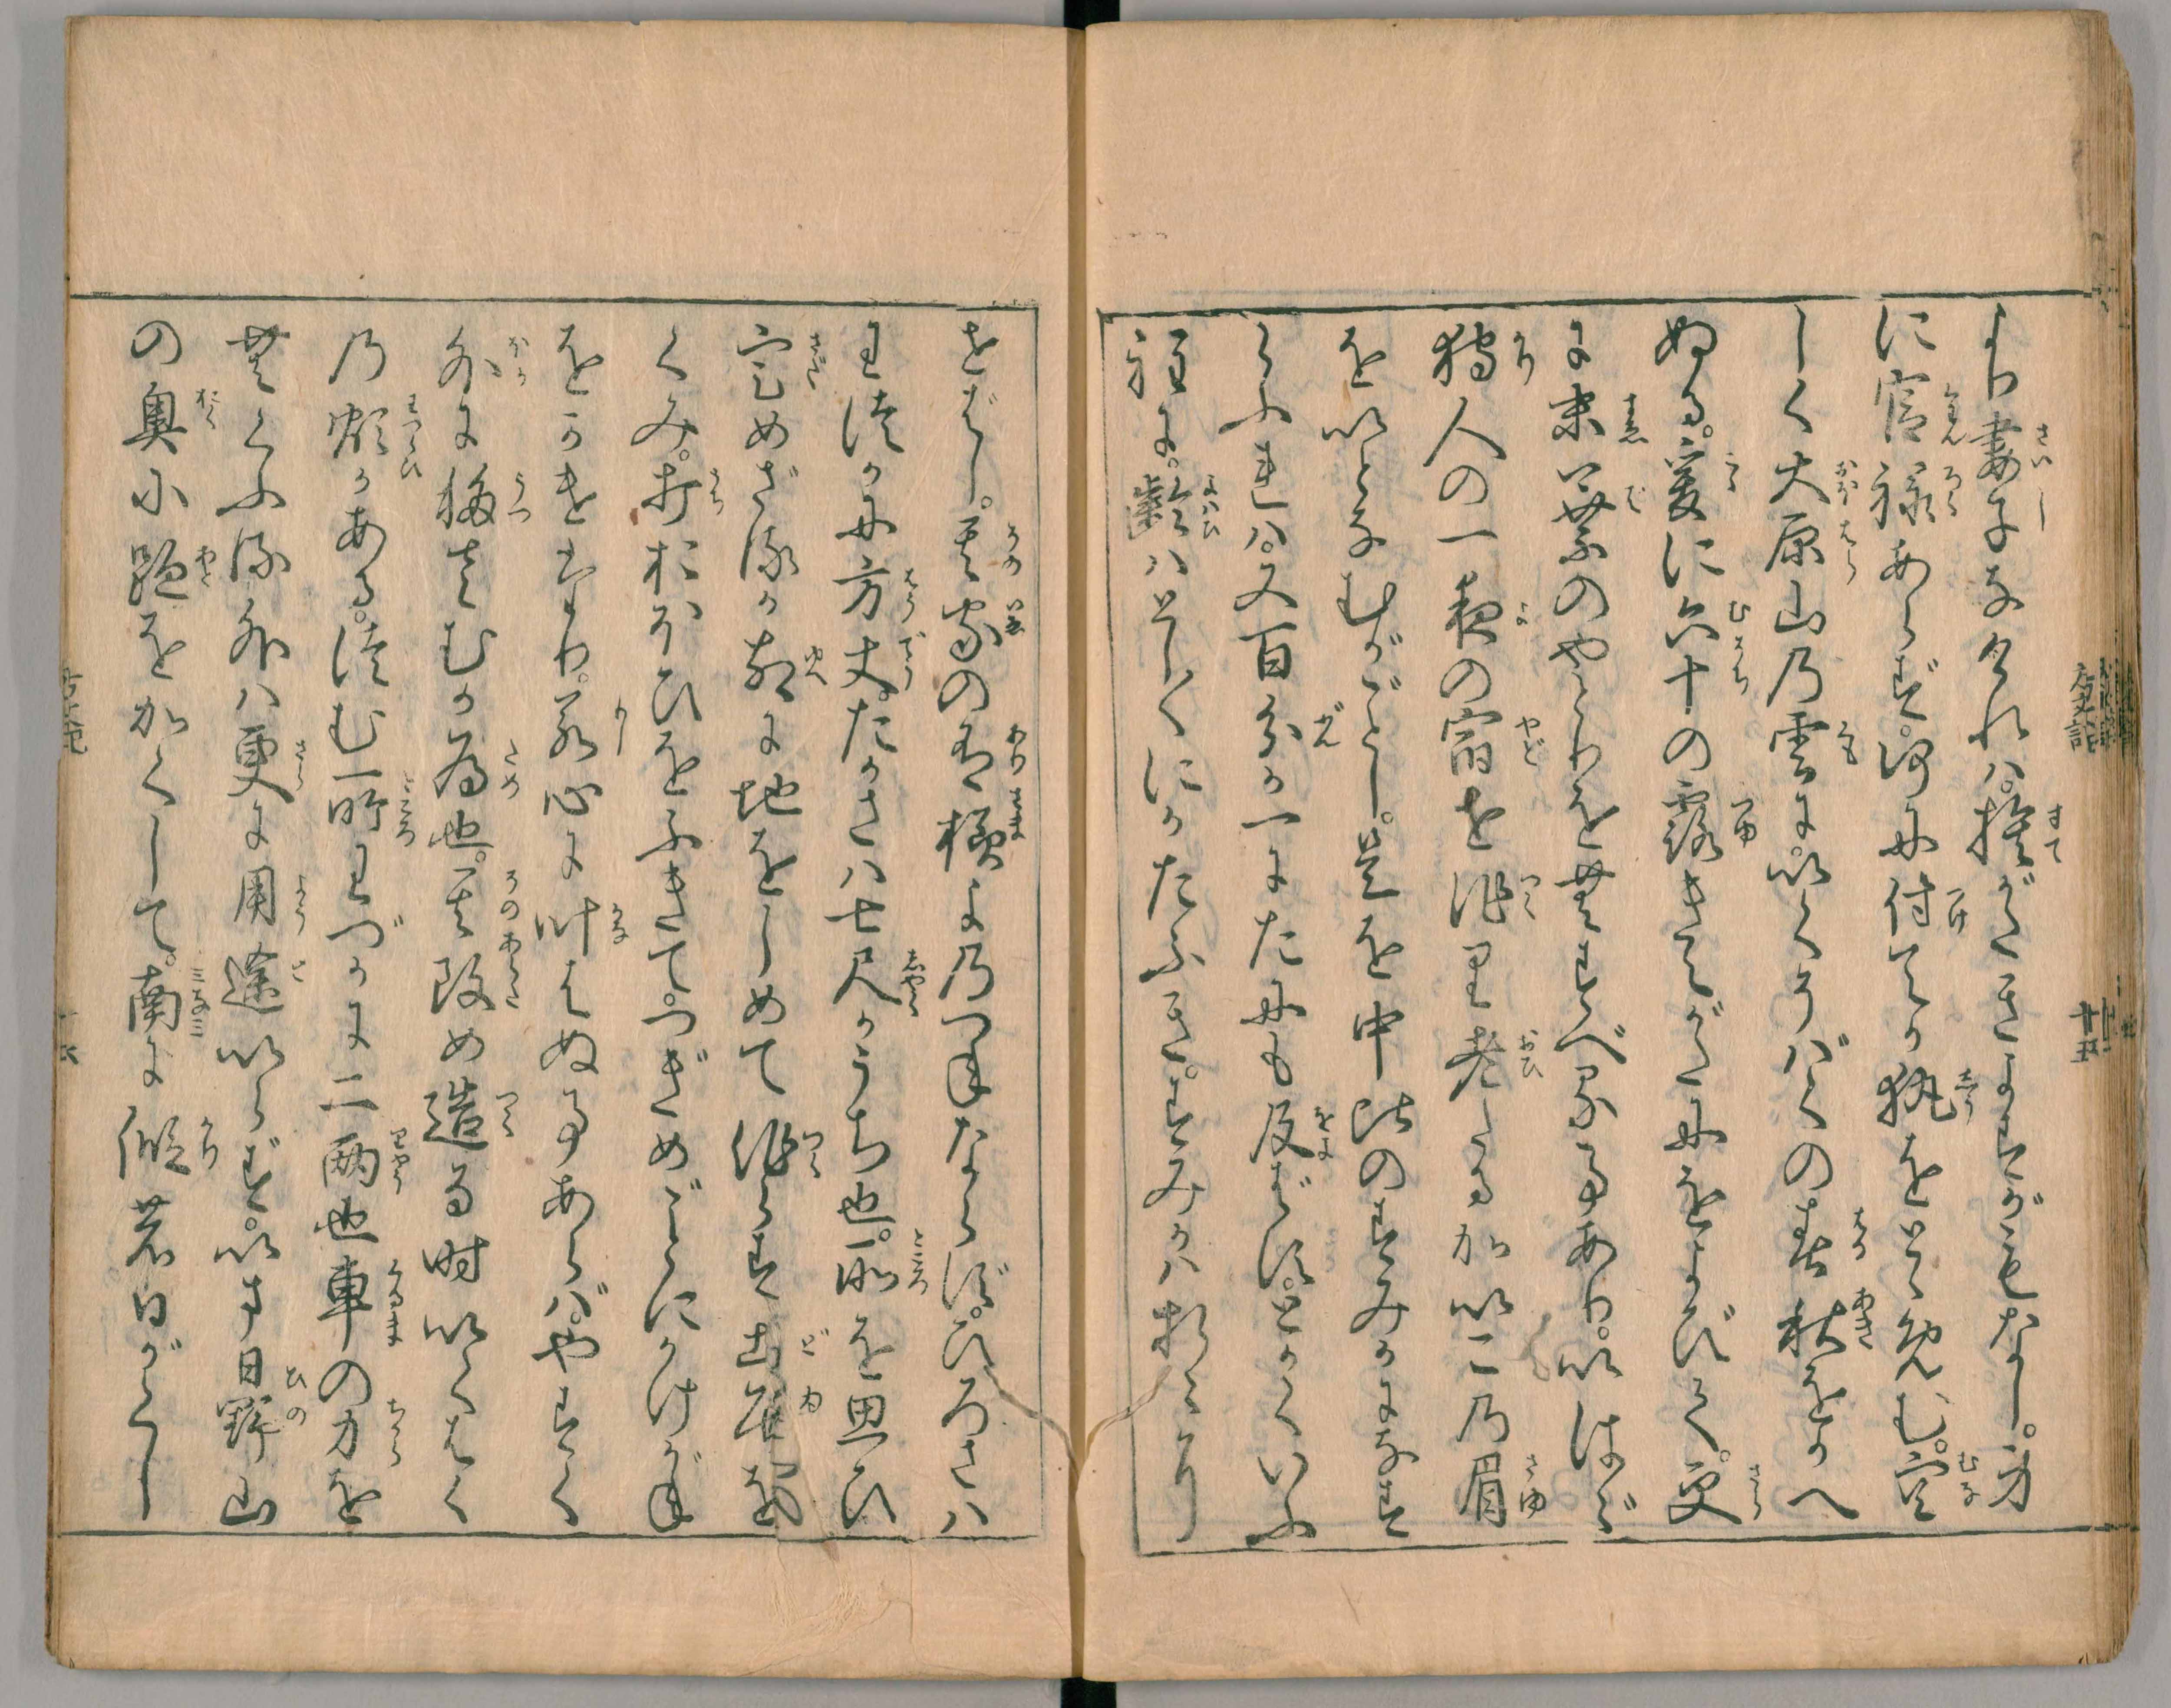 より妻子なければ。捨がたきよすがもなし。身
に官禄あらず。何に付てか執をとゞめむ。空
しく大原山乃雲に。いくそばくの春秋をかへ
ぬる。爰に六十の露きえがたにをよびて。更
に末葉のやどりを無すべる事あり。いはゞ
狩人の一夜の宿を作り老たるかいこ乃眉
をいとなむがごとし。是を中比のすみかになず
らふれは。又百分が一にたにも及ばず。とかくいふ
程に。齢ハとし〳〵にかたふき。すみかハ折〻に
せばし。其家の有様よ乃つねならず。ひろさハ
わ徒かに方丈。たかさハ七尺かうち也。所を思ひ
定めざるが故に地をしめて作らず土居を
くみ。打おほひをふきて。つぎめごとにかけがね
をかけたり。若心に叶はぬ事あらば。やすく
外に移さむか為也。其改め造る時いくはく
乃煩かある。徒む所わづかに二両也車の力を
むくふる外ハ更に用途いらず。いま日野山
の奥に跡をかくして。南に仮の日がくし